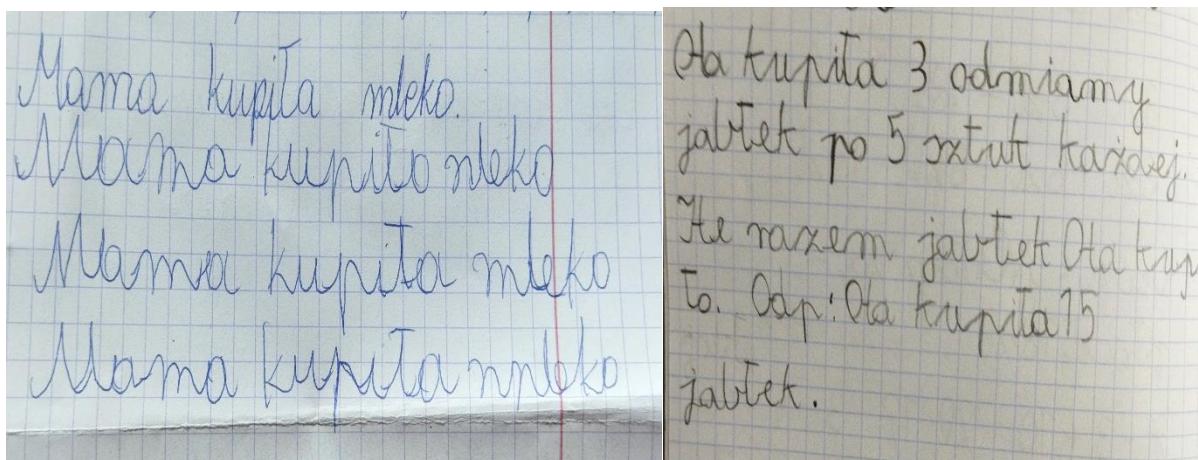 Mama kupiła mleko.
Mama kupiło mleko
Mama kupiła mleko
Mama kupiła mleko
Ola kupiła 3 odmiamy
jabłek po 5 sztuk każdej.
Ile razem jabłek Ola kup
ło. Odp: Ola kupiła 15
jabłek.